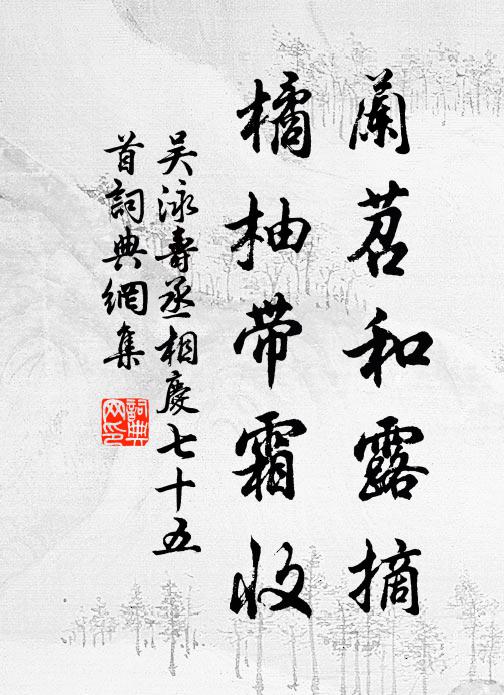 蘭苕和露摘
橘柚帶霜收
吴泳壽丞相慶七十五
首詞典網集
詞典网印